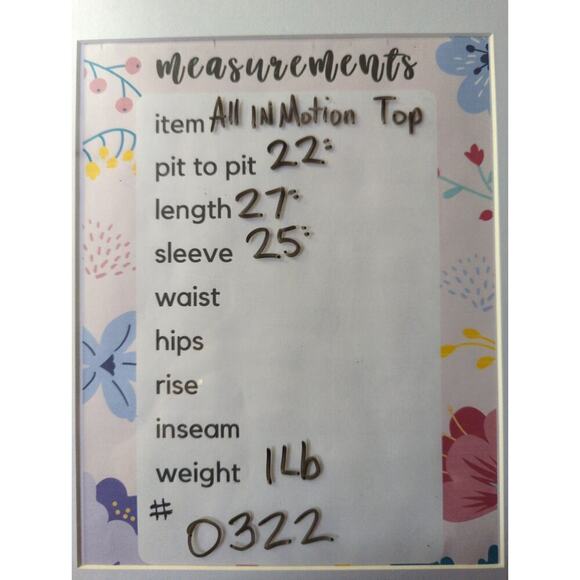 measurements
item All IN Motion Top
pit to pit 22"
length 27"
sleeve 25"
waist
hips
rise
inseam
weight 1Lb
#
0322